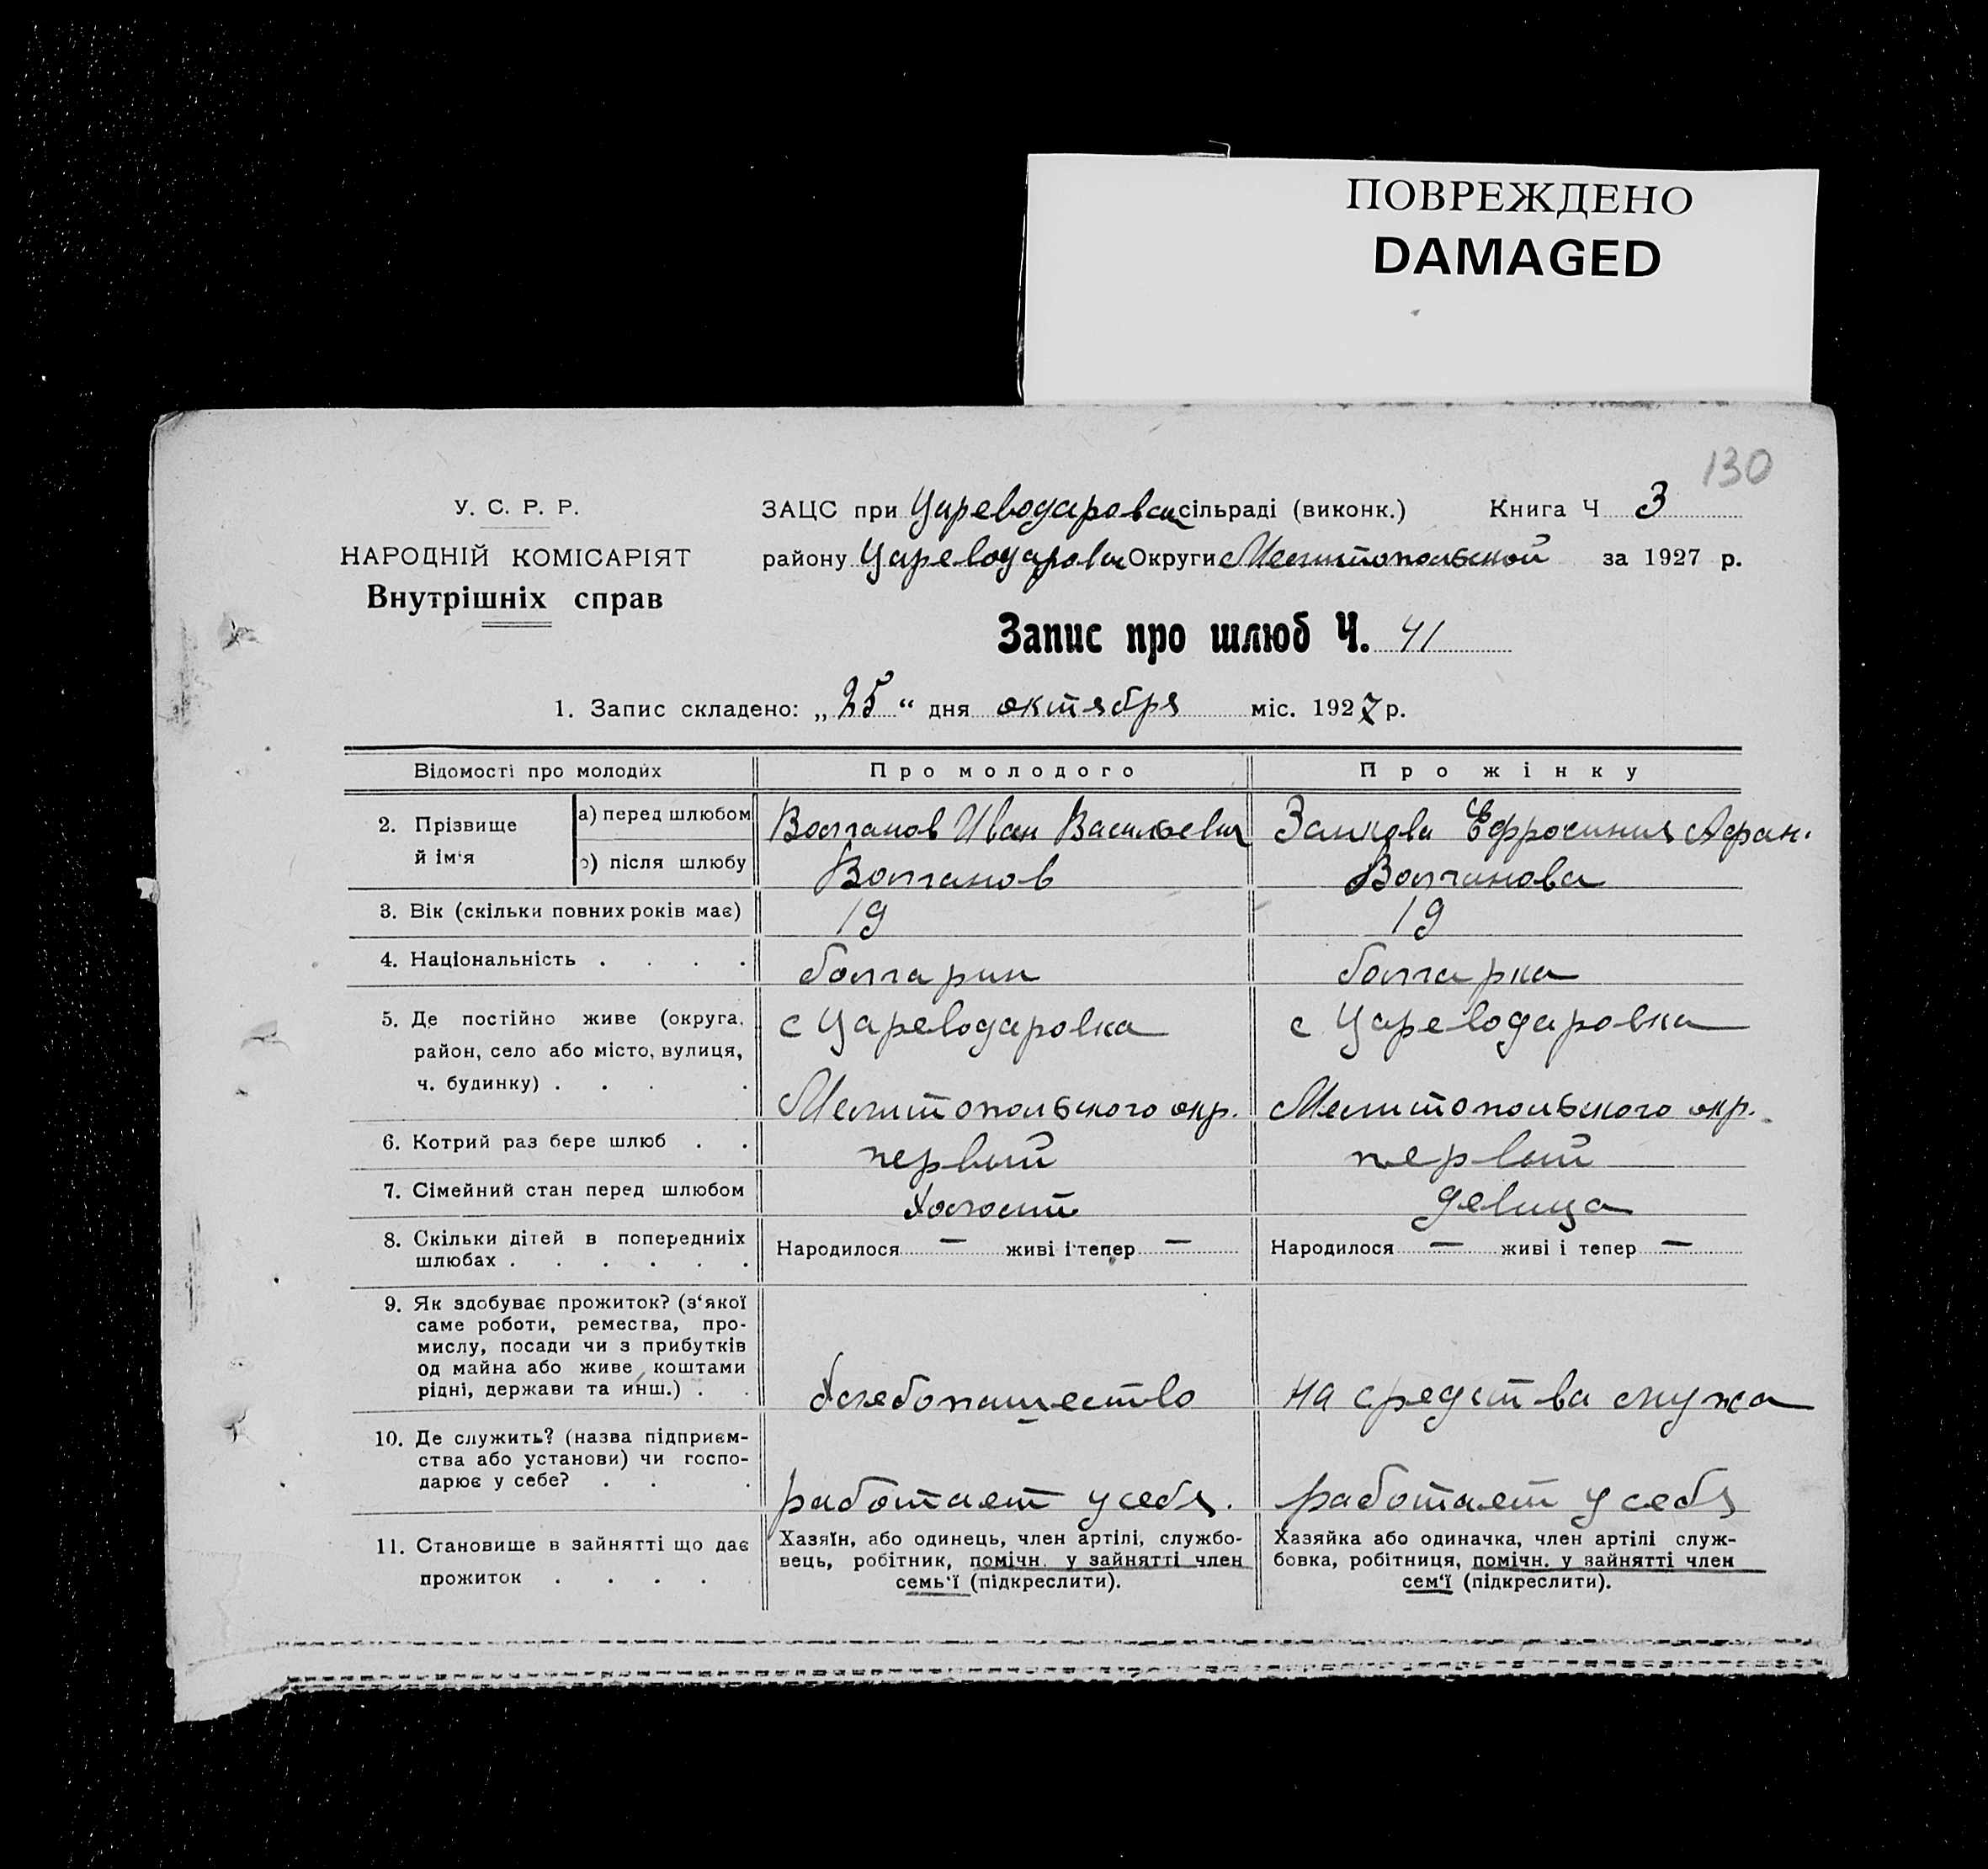 ПОВРЕЖДЕНО
DAMAGED
130
У. С. Р. Р.
НАРОДНІЙ КОМІСАРІЯТ
Внутрішніх справ
ЗАЦС при Цареводаровск сільраді (виконк.) Книга Ч 3
району Цареводаровск Округи Мелитопольской за 1927 р.
Запис про шлюб Ч. 41
1. Запис складено: „25“ дня октября міс. 1927 р.
Відомості про молодих
Про молодого
Про жінку
2. Прізвище й ім‘я
а) перед шлюбом
Волганов Иван Васильевич
Ефросиния Афан.
б) після шлюбу
Волганов
Волганова
3. Вік (скільки повних років має)
19
19
4. Національність . . . .
болгарин
болгарка
5. Де постійно живе (округа,
район, село або місто, вулиця,
ч. будинку) . . . .
с Цареводаровка
Мелитопольского окр.
с Цареводаровка
Мелитопольского окр.
6. Котрий раз бере шлюб . .
первый
первый
7. Сімейний стан перед шлюбом
Холост
девица
8. Скільки дітей в попередниіх
шлюбах . . . . . .
Народилося — живі і тепер —
Народилося — живі і тепер —
9. Як здобуває прожиток? (з‘якої
саме роботи, ремества, про-
мислу, посади чи з прибутків
од майна або живе коштами
рідні, держави та инш.) . .
Хлебопашество
на средства мужа
10. Де служить? (назва підприєм-
ства або установи) чи госпо-
дарює у себе? . . .
работает у себя.
работает у себя
11. Становище в зайнятті що дає
прожиток . . . . .
Хазяїн, або одинець, член артілі, службо-
вець, робітник, помічн. у зайнятті член
семь‘ї (підкреслити).
Хазяйка або одиначка, член артілі служ-
бовка, робітниця, помічн. у зайнятті член
сем‘ї (підкреслити).